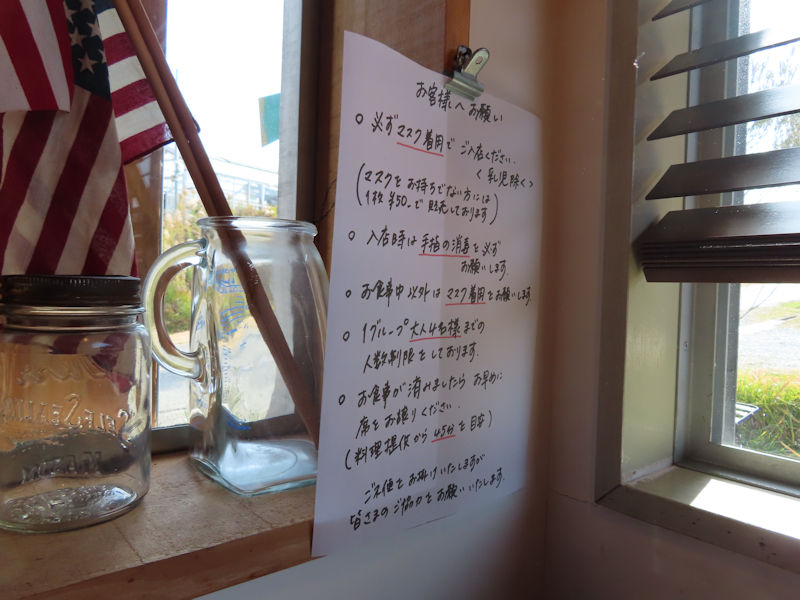 お客様へお願い
○ 必ずマスク着用でご入店ください.
<乳児除く>
(マスクをお持ちでない方には
1枚¥50-で販売しております)
○ 入店時は手指の消毒を必ず
お願いします.
○ お食事中以外はマスク着用をお願いします.
○ 1グループ大人4名様までの
人数制限をしております.
○ お食事が済みましたらお早めに
席をお譲りください.
(料理提供から45分を目安)
ご不便をお掛けいたしますが
皆さまのご協力をお願いいたします.
SELF SEALING
MASON